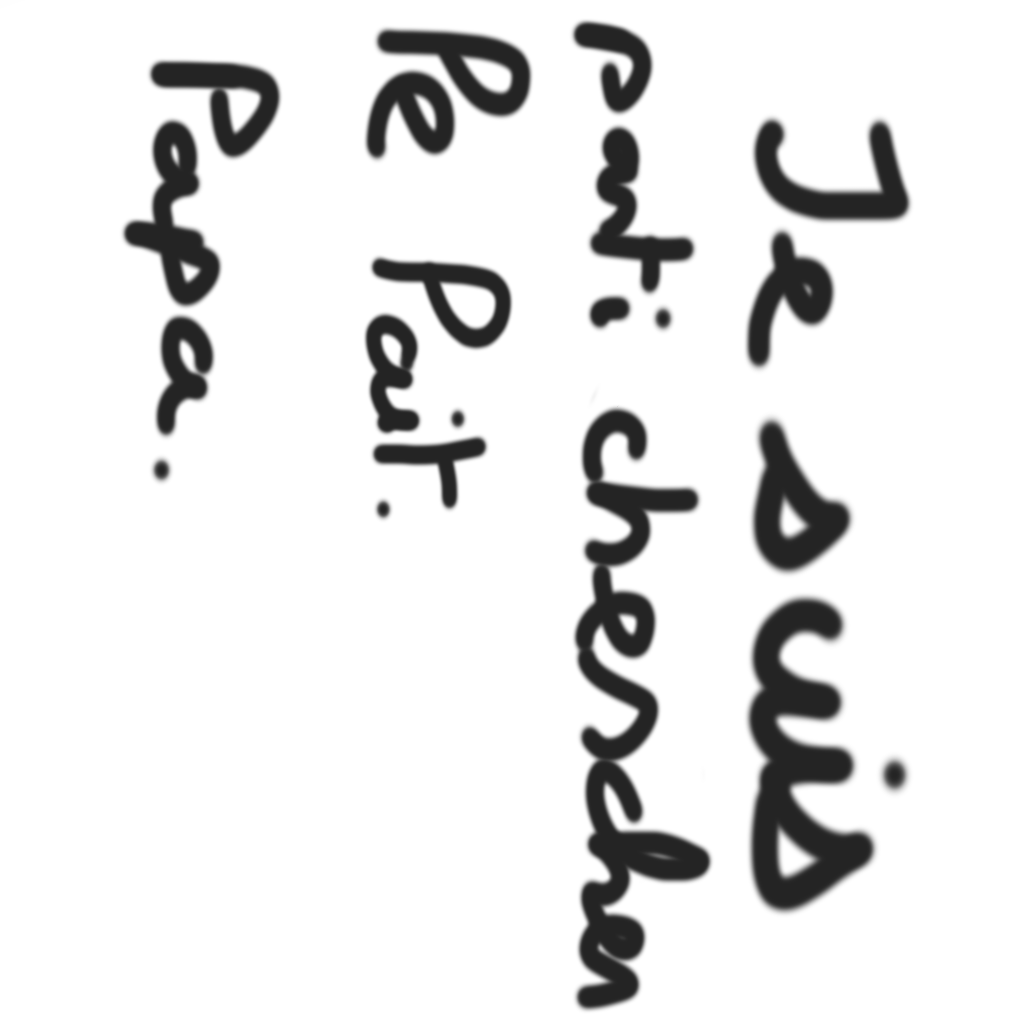 Je suis
parti chercher
le lait.
Papa.